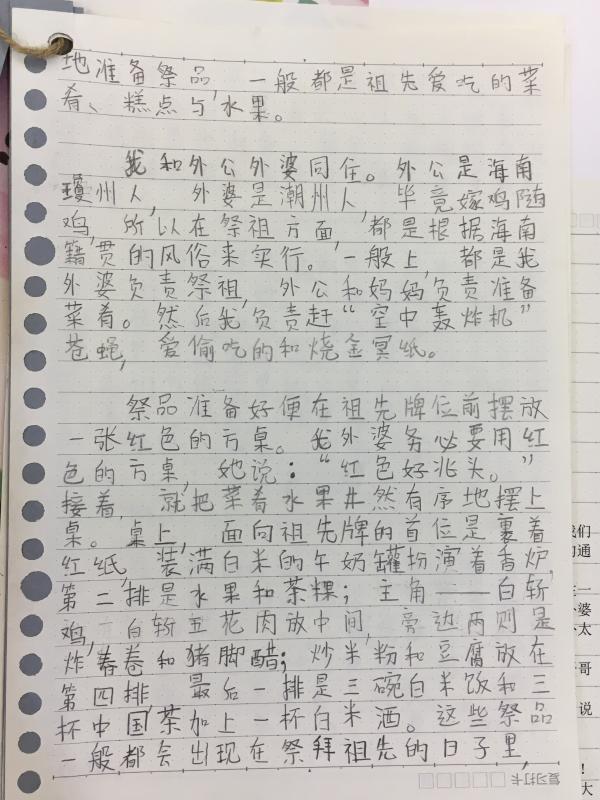 地准备祭品，一般都是祖先爱吃的菜
肴、糕点与水果。
我和外公外婆同住。外公是海南
琼州人，外婆是潮州人，毕竟嫁鸡随
鸡，所以在祭祖方面，都是根据海南
籍贯的风俗来实行。一般上，都是我
外婆负责祭祖，外公和妈妈负责准备
菜肴。然后我负责赶“空中轰炸机”
苍蝇，爱偷吃的和烧金冥纸。
祭品准备好便在祖先牌位前摆放
一张红色的方桌。我外婆务必要用红
色的方桌，她说：“红色好兆头。”
接着，就把菜肴水果井然有序地摆上
桌。桌上，面向祖先牌的首位是裹着
红纸，装满白米的牛奶罐扮演着香炉，
第二排是水果和茶粿；主角——白斩
鸡，白斩五花肉放中间，旁边两则是
炸春卷和猪脚醋；炒米粉和豆腐放在
第四排，最后一排是三碗白米饭和三
杯中国茶加上一杯白米酒。这些祭品
一般都会出现在祭拜祖先的日子里，
复习打卡
我们
通
一
婆
太
哥
说
！
大